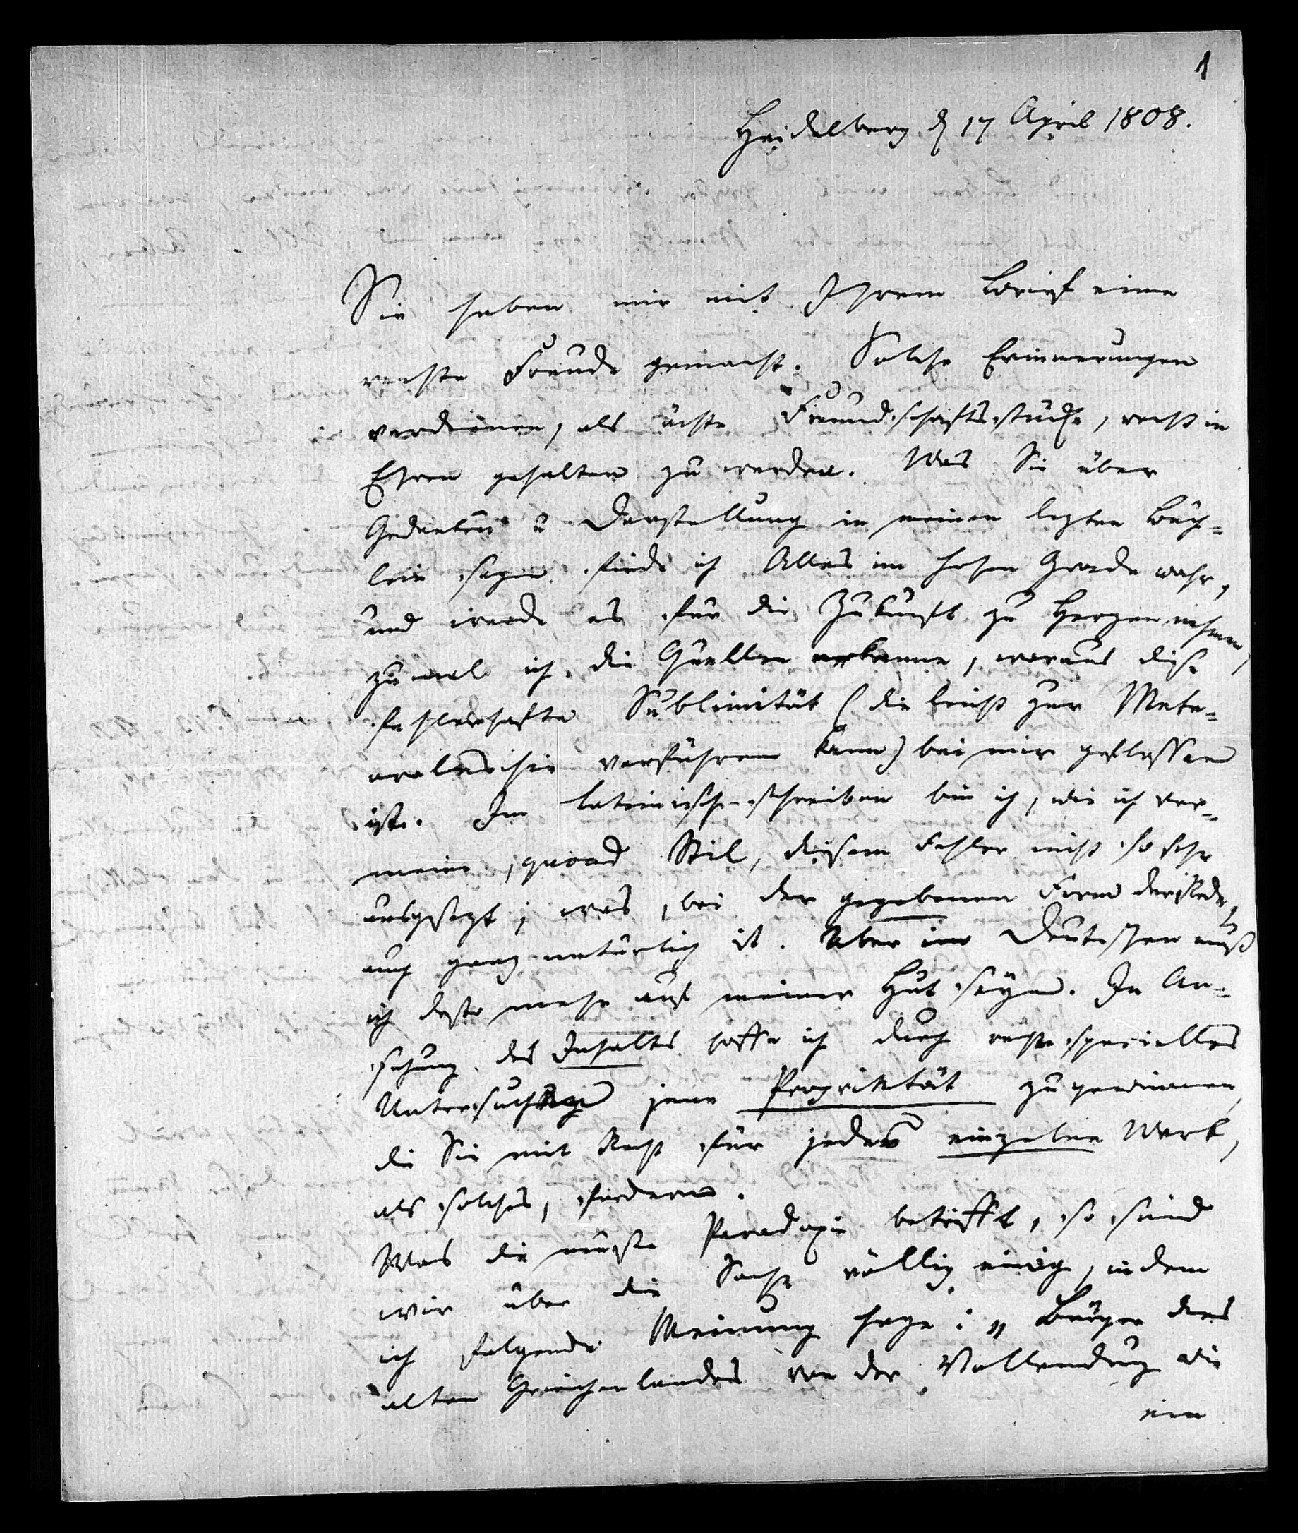 1
Heidelberg d 17 April 1808.
Sie haben mir mit Ihrem Brief eine
rechte Freude gemacht. Solche Erinnerungen
verdienen, als ächte Freundschaftsstücke, recht in
Ehren gehalten zu werden. Was Sie über
Gedanken u Darstellung in meinen lezten Büch-
lein sagen finde ich Alles im hohen Grade wahr,
und werde es für die Zukunft zu Herzen nehmen,
zumal ich die Quellen erkenne, woraus diese
fehlerhafte Sublimität (die leicht zur Mete-
oroleschie verführen kann) bei mir geflossen
ist. Im lateinisch-schreiben bin ich, wie ich ver-
meine, quoad Stil, diesem Fehler nicht so sehr
ausgesezt; was, bei der gegebenen Form der Rede,
auch ganz natürlich ist. Aber im Deutschen muß
ich desto mehr auf meiner Hut seyn. In An-
sehung des Inhalts hoffe ich durch recht specielles
Untersuchen jene Proprietät zu gewinnen,
die Sie mit Recht für jedes einzelne Werk,
als solches, fordern.
Was die nächste Paradoxie betrifft, so sind
wir über die Sache völlig einig, indem
ich folgende Meinung hege: „ Bürger des
alten Griechenlandes von der Vollendung wie
ein